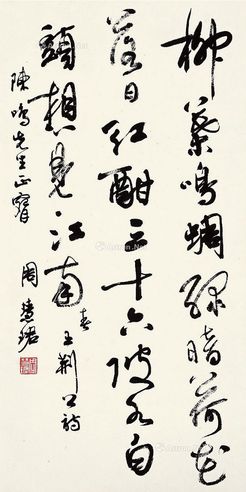 柳葉鳴蜩綠暗荷花
落日紅酣三十六陂水白
頭想見江南 春 王荊公詩
陳鳴先生正
周慧珺